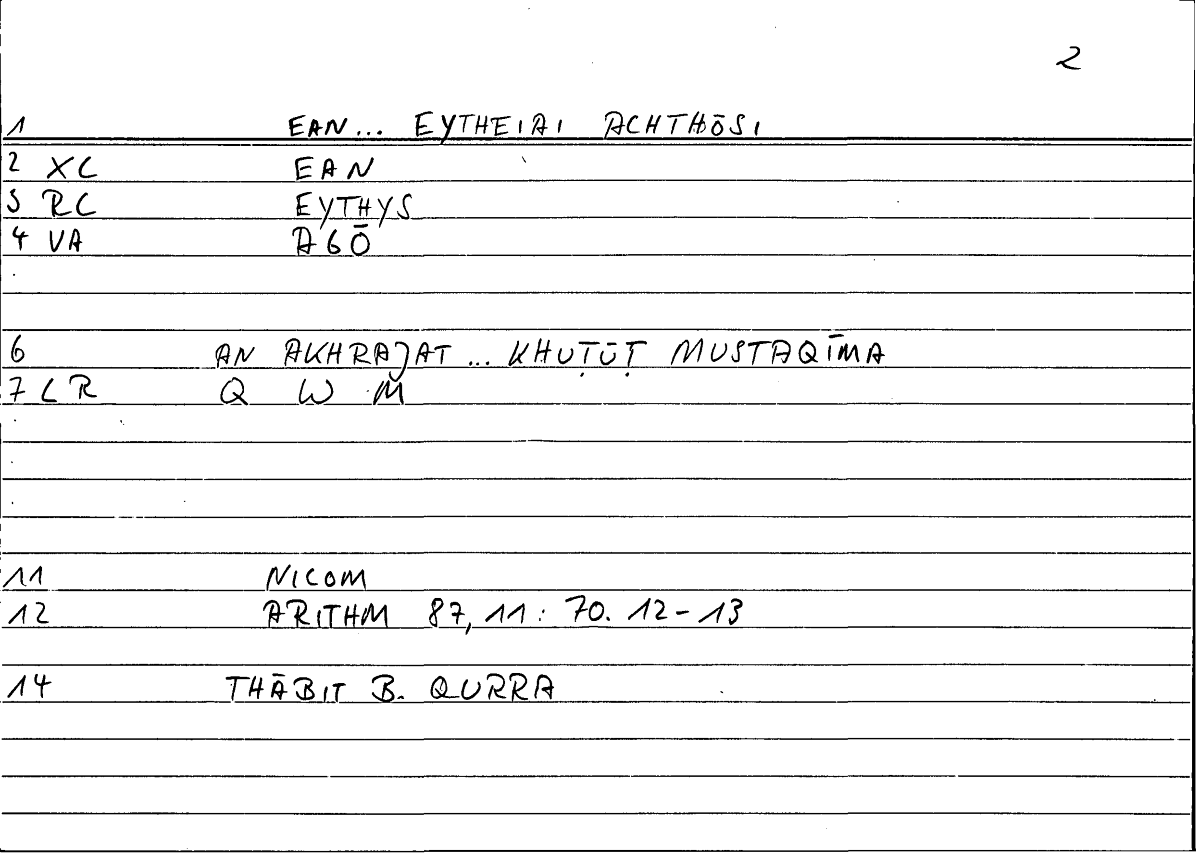 2
1 EAN... EYTHEIAI ACHTHŌSI
2 XC EAN
3 RC EYTHYS
4 VA AGŌ
6 AN AKHRAJAT ... KHUṬŪṬ MUSTAQĪMA
7 LR Q W M
11 NICOM
12 ARITHM 87, 11 : 70. 12-13
14 THĀBIT B. QURRA